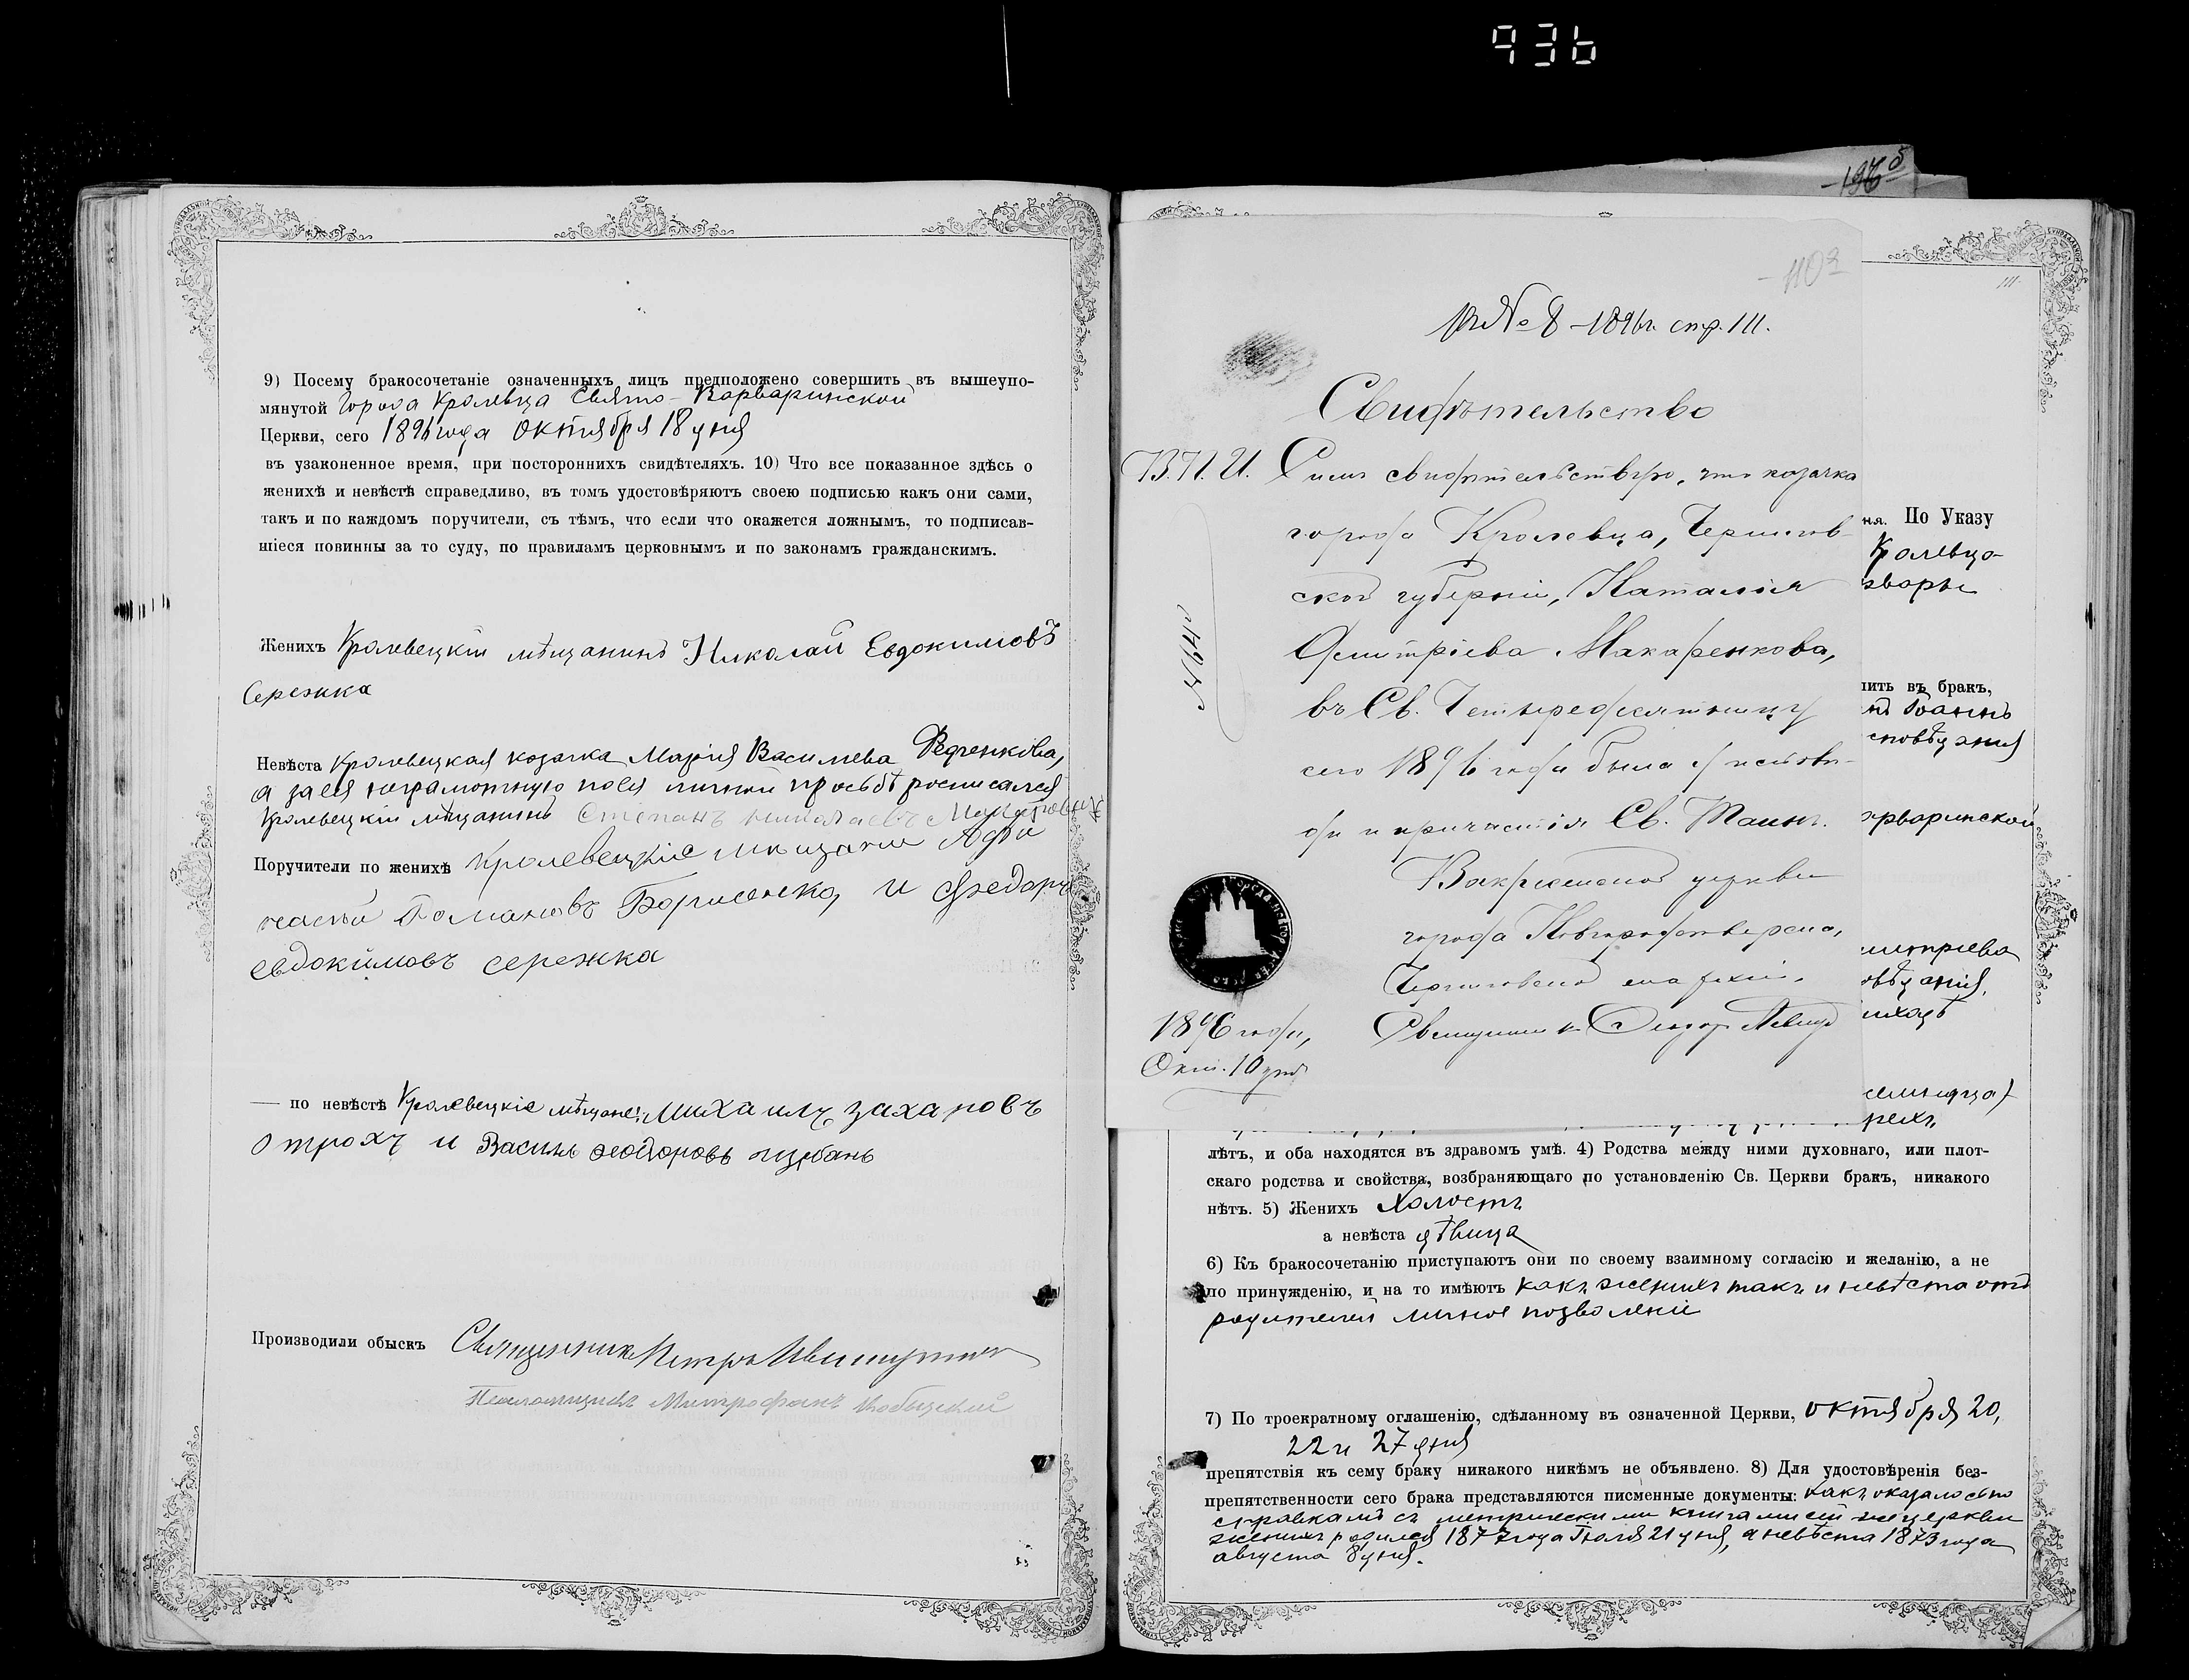 936
9) Посему бракосочетаніе означенныхъ лицъ предположено совершить въ вышеупо-
мянутой Города Кролевца Свято-Варваринской
Церкви, сего 1896 года октября 18 дня
въ узаконенное время, при постороннихъ свидѣтеляхъ. 10) Что все показанное здѣсь о
женихѣ и невѣстѣ справедливо, въ томъ удостовѣряютъ своею подписью какъ они сами,
такъ и по каждомъ поручители, съ тѣмъ, что если что окажется ложнымъ, то подписав-
шіеся повинны за то суду, по правиламъ церковнымъ и по законамъ гражданскимъ.
Женихъ Кролевецкій мѣщанинъ Николай Евдокимовъ
Сережка
Невѣста Кролевецкая козачка Марія Василиева Федченкова,
а за ея неграмотную по ея личной просьбѣ росписался
Кролевецкій мѣщанинъ Степанъ Николаевъ
Поручители по женихѣ Кролевецкіе мѣщане Афа
насій Романовъ Борисенко, и Федоръ
Евдокимовъ Сережка
— по невѣстѣ Кролевецкіе мѣщане: Михаилъ Захаровъ
Отрохъ и Василь Феодоровъ
Производили обыскъ Священникъ Петръ
Псаломщикъ Митрофанъ
110а
Къ № 8 – 1896 г. стр. 111.
Свидѣтельство
В.П.И. Симъ свидѣтельствую, что козачка
города Кролевца, Чернигов-
ской губерніи, Наталія
Димитріева Макаренкова,
въ Св. Четыредесятницу
сего 1896 года была у исповѣ-
ди и причастія Св. Таинъ.
Воскресенской церкви
города Новгородсѣверска,
Черниговской епархіи.
Священникъ
1896 года,
Окт. 10 дня
№ 64
111
ня. По Указу
Кролевца
ить въ бракъ,
Іоаннъ
сповѣданія
арваринской
митріева
овѣданія,
лѣтъ, и оба находятся въ здравомъ умѣ. 4) Родства между ними духовнаго, или плот-
скаго родства и свойства, возбраняющаго по установленію Св. Церкви бракъ, никакого
нѣтъ. 5) Женихъ холостъ
а невѣста дѣвица
6) Къ бракосочетанію приступаютъ они по своему взаимному согласію и желанію, а не
по принужденію, и на то имѣютъ какъ женихъ такъ и невѣста отъ
родителей личное позволеніе
7) По троекратному оглашенію, сдѣланному въ означенной Церкви, октября 20,
22 и 27 дня
препятствія къ сему браку никакого никѣмъ не объявлено. 8) Для удостовѣренія без-
препятственности сего брака представляются писменные документы: какъ оказалось по
справкамъ съ метрическими книгами сей же церкви
женихъ родился 1877 года Іюля 21 дня, а невѣста 1873 года
августа 8 дня.